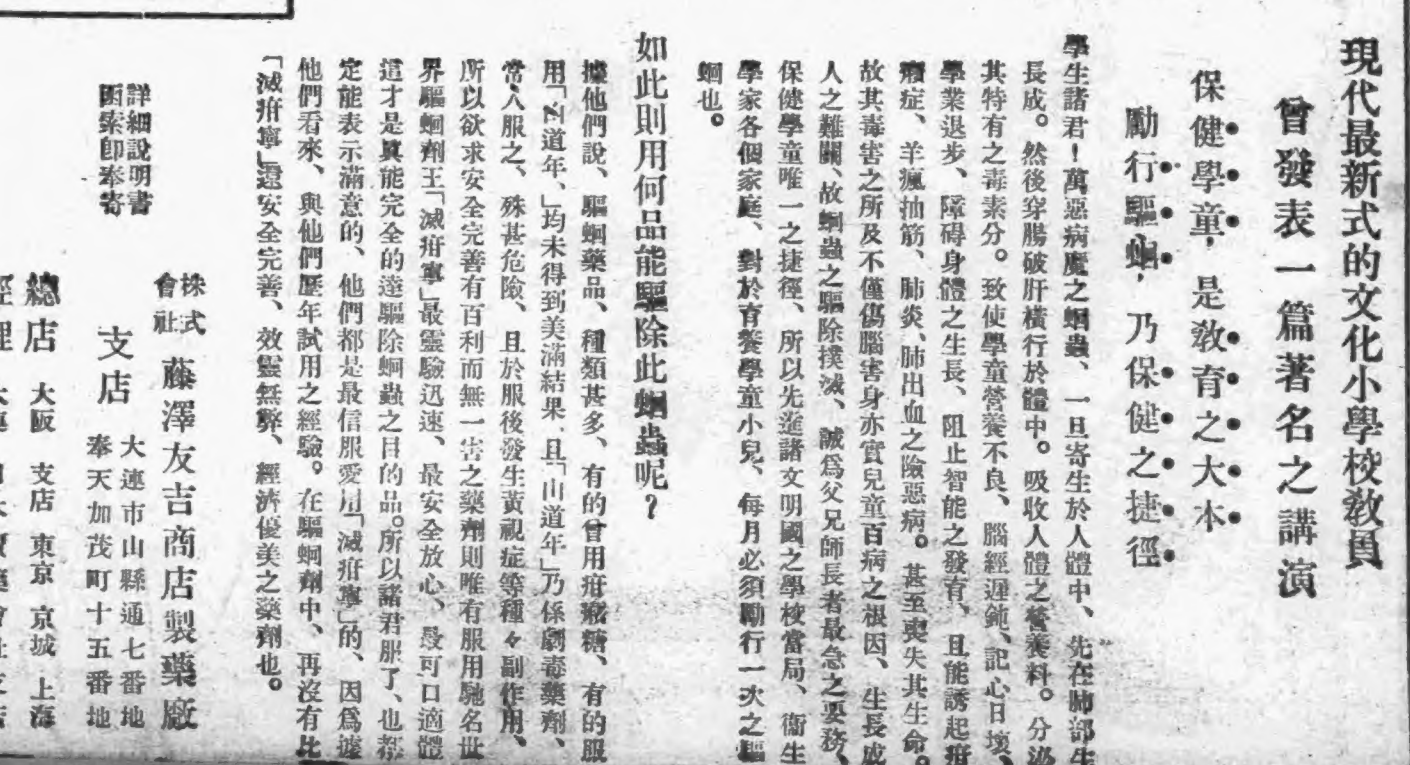 現代最新式的文化小學校教員
曾發表一篇著名之講演
保健學童，是教育之大本
勵行驅蛔，乃保健之捷徑
學生諸君！萬惡病魔之蛔蟲、一旦寄生於人體中、先在肺部生
長成。然後穿腸破肝橫行於體中。吸收人體之營養料。分泌
其特有之毒素分。致使學童營養不良、腦經遲鈍、記心日壞、
學業退步、障碍身體之生長、阻止智能之發育、且能誘起疳
癪症、羊瘋抽筋、肺炎、肺出血之險惡病。甚至喪失其生命。
故其毒害之所及不僅傷腦害身亦實兒童百病之根因、生長成
人之難關、故蛔蟲之驅除撲滅、誠爲父兄師長者最急之要務、
保健學童唯一之捷徑、所以先進諸文明國之學校當局、衛生
學家各個家庭、對於育養學童小兒、每月必須勵行一次之驅
蛔也。
如此則用何品能驅除此蛔蟲呢？
據他們說、驅蛔藥品、種類甚多、有的曾用疳積糖、有的服
用「山道年、」均未得到美滿結果、且「山道年」乃係劇毒藥劑、
常人服之、殊甚危險、且於服後發生黃視症等種々副作用、
所以欲求安全完善有百利而無一害之藥劑則唯有服用馳名世
界驅蛔劑王「滅疳寧」最靈驗迅速、最安全放心、最可口適體
這才是眞能完全的達驅除蛔蟲之目的品。所以諸君服了、也都
定能表示滿意的、他們都是最信服愛用「滅疳寧」的、因爲據
他們看來、與他們歷年試用之經驗。在驅蛔劑中、再沒有比
「滅疳寧」還安全完善、效靈無弊、經濟優美之藥劑也。
詳細說明書
函索即奉寄
株式會社 藤澤友吉商店製藥廠
支店 大連市山縣通七番地
奉天加茂町十五番地
總店 大阪 支店 東京 京城 上海